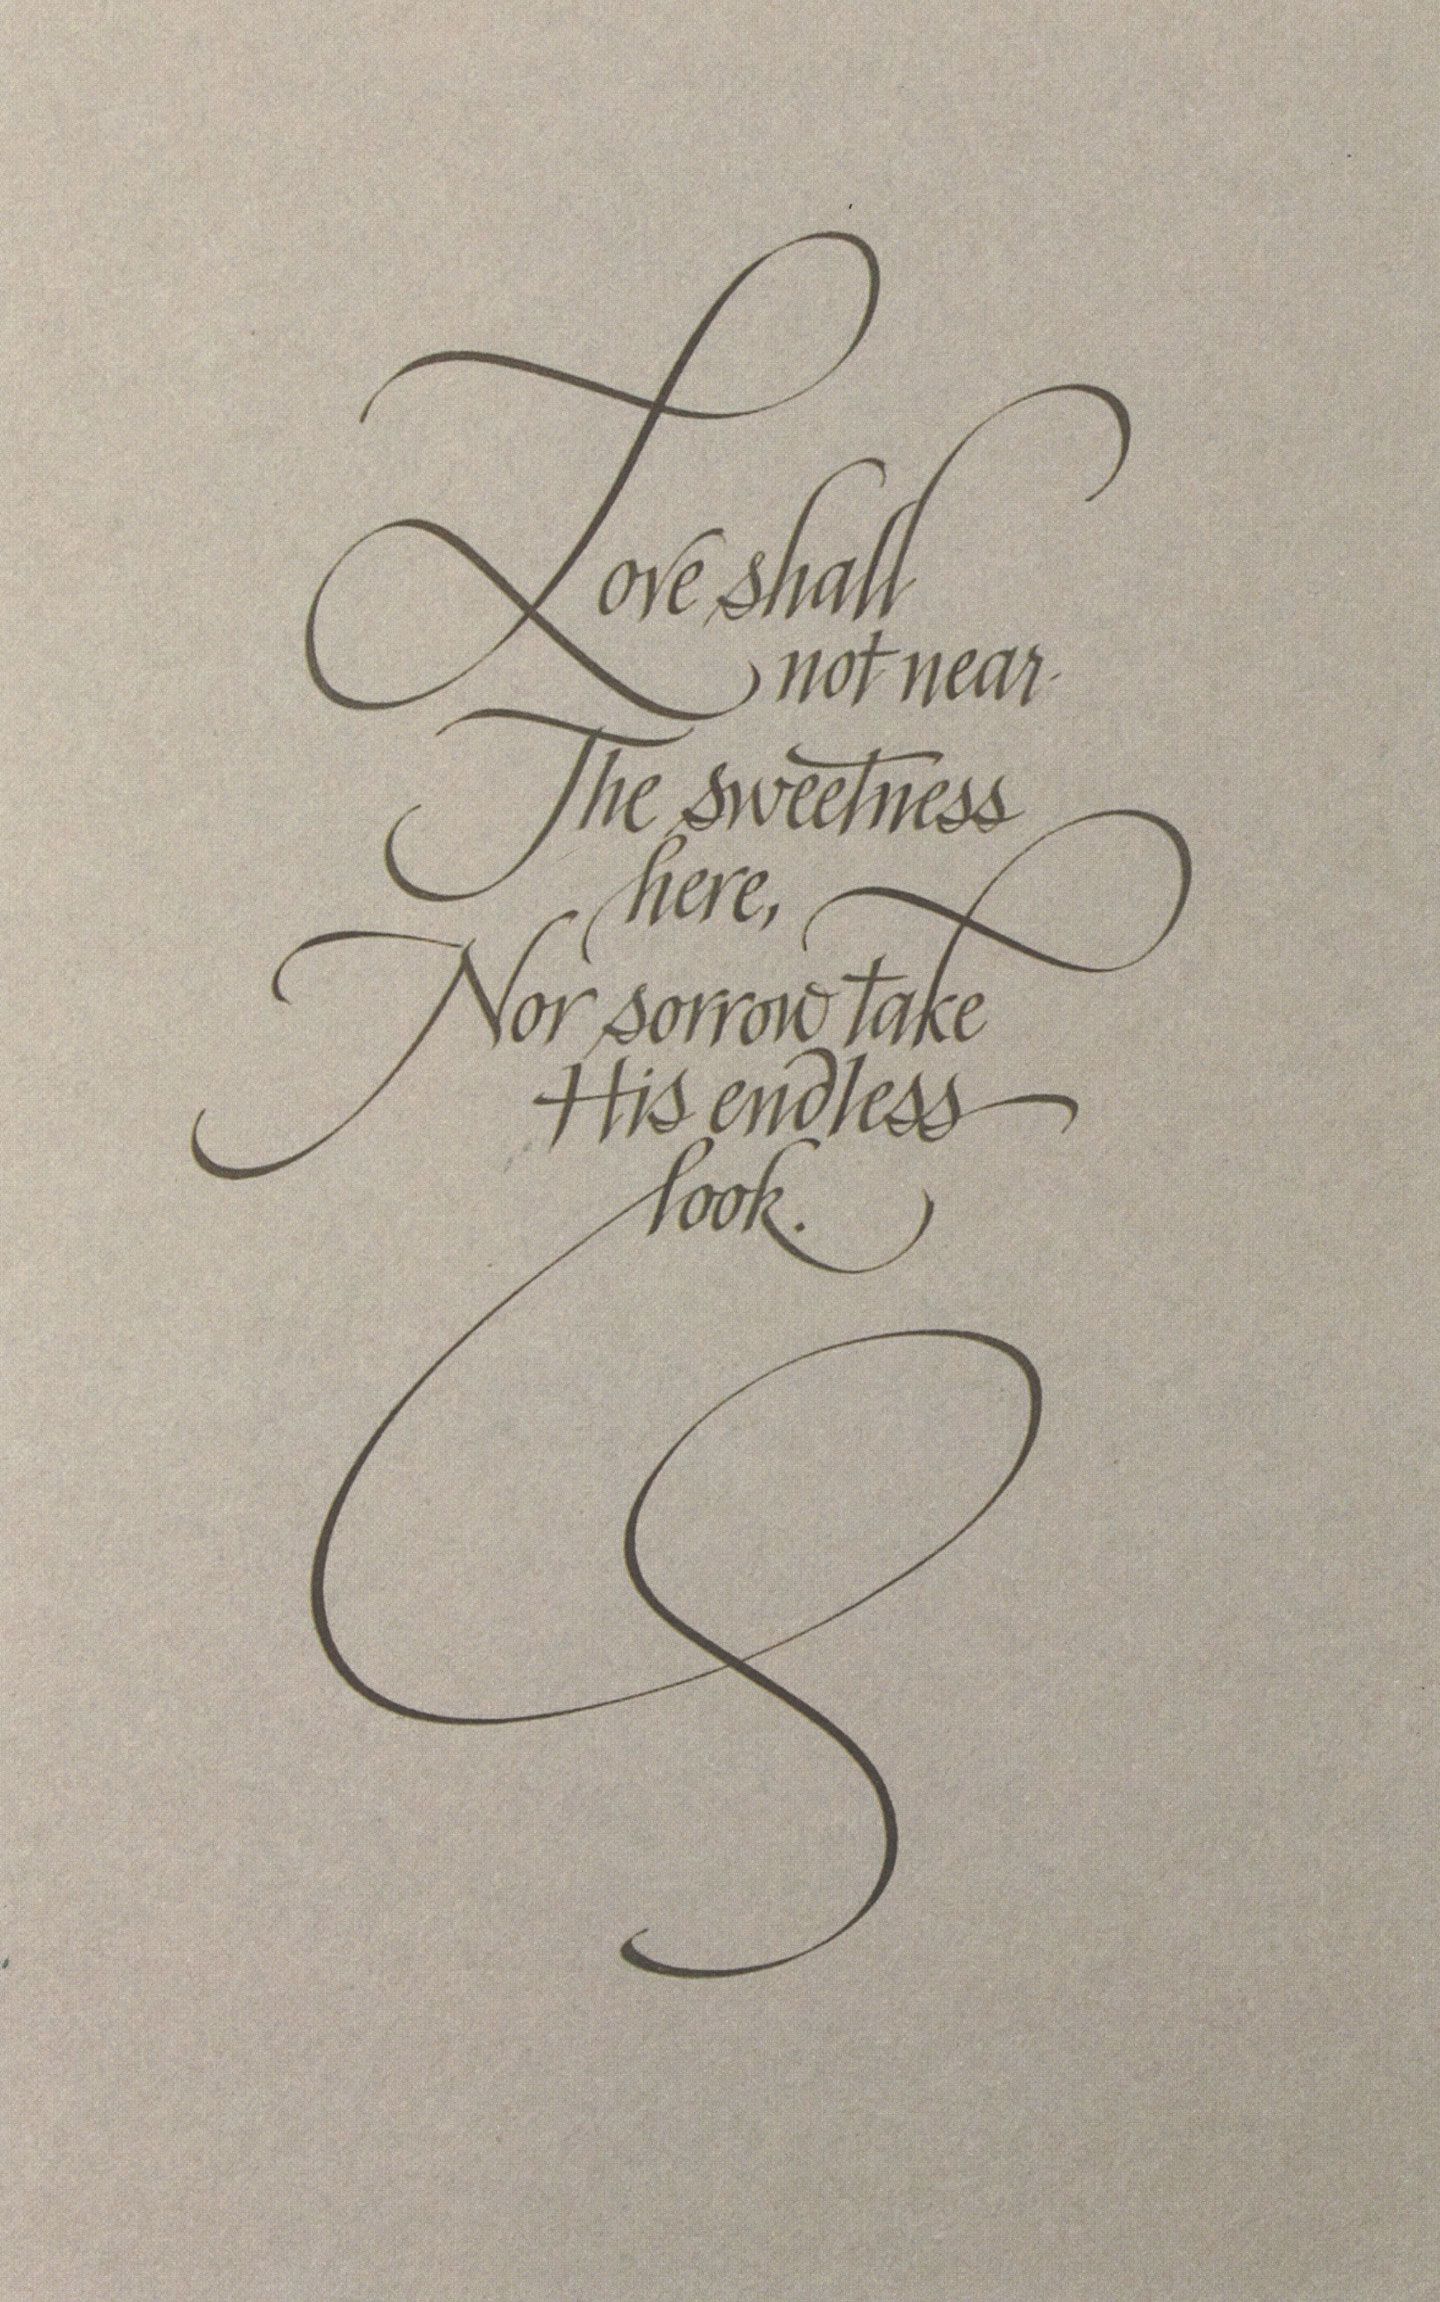 Love shall
not near
The sweetness
here,
Nor sorrow take
His endless
look.